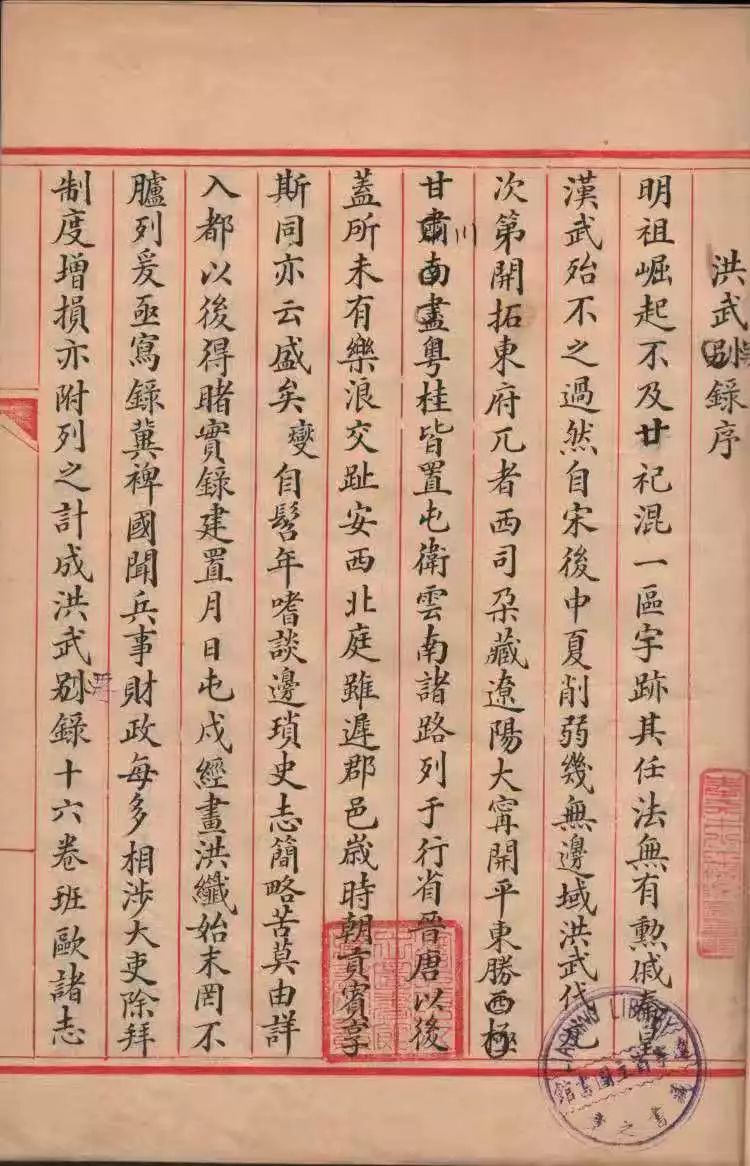 洪武别錄序
明祖崛起不及廿祀混一區宇跡其任法無有勲戚秦皇
漢武殆不之過然自宋後中夏削弱幾無邊域洪武代元
次第開拓東府兀者西司朶藏遼陽大甯開平東勝西極
甘肅川南盡粤桂皆置屯衛雲南諸路列于行省晉唐以後
蓋所未有樂浪交趾安西北庭雖遲郡邑歲時朝貢賓享
斯同亦云盛矣燮自髫年嗜談邊瑣史志簡略苦莫由詳
入都以後得睹實錄建置月日屯戍經畫洪纖始末罔不
臚列爰亟寫錄冀裨國聞兵事財政每多相涉大吏除拜
制度增損亦附列之計成洪武别錄十六卷班歐諸志
LIAONING LIBRARY
遼寧省立圖書館
藏書之章